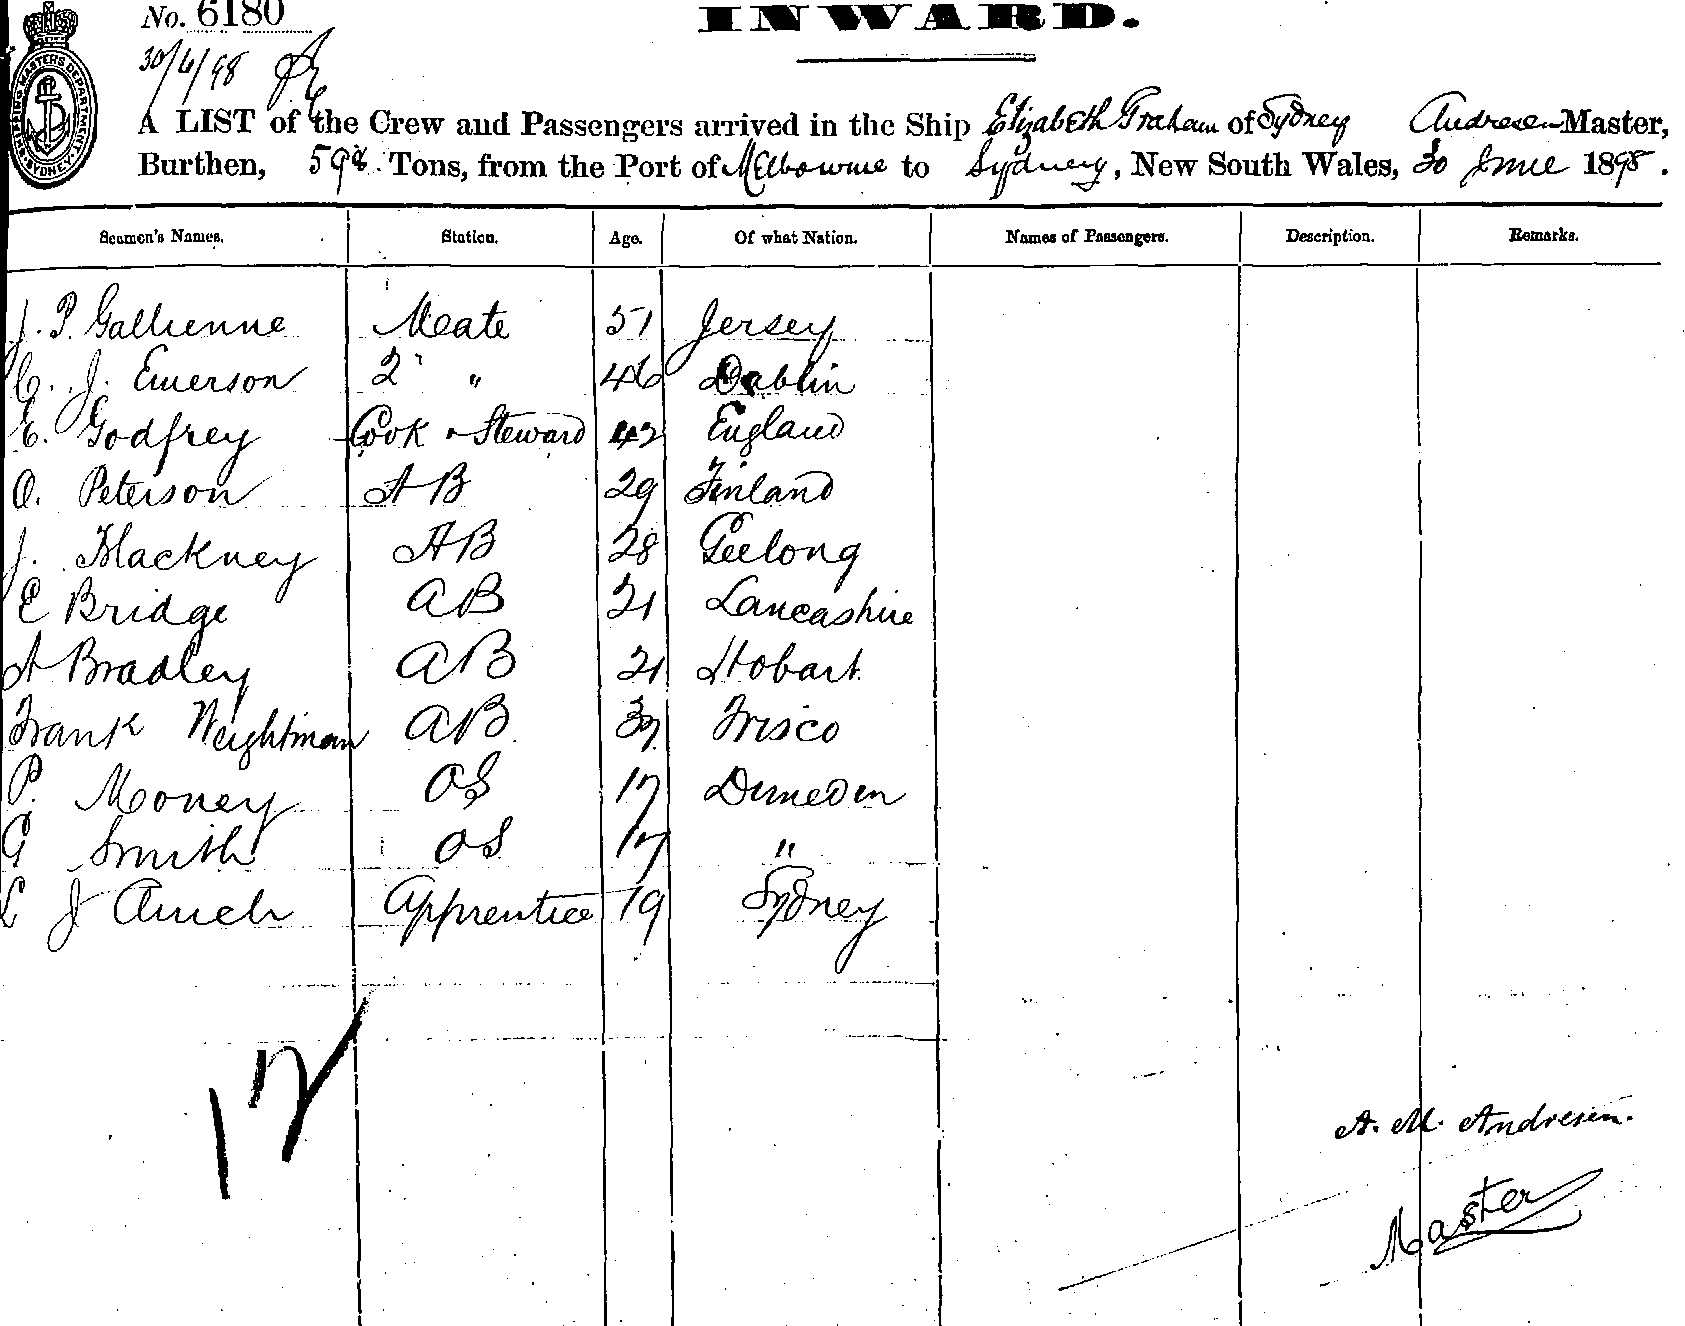 No. 6180
INWARD.
30/6/98
A LIST of the Crew and Passengers arrived in the Ship Elizabeth Graham of Sydney Andresen Master,
Burthen, 598 Tons, from the Port of Melbourne to Sydney, New South Wales, 30 June 1898.
Seamen's Names. Station. Age. Of what Nation. Names of Passengers. Description. Remarks.
J. P. Gallienne Meate 51 Jersey
C. J. Emerson 2 " 46 Dublin
E. Godfrey Cook & Steward 42 England
O. Peterson AB 29 Finland
J. Blackney AB 28 Geelong
E Bridge AB 21 Lancashire
A Bradley AB 21 Hobart
Frank Weightman AB 37 Frisco
P. Money OS 17 Duneden
G Smith OS 17 "
L J Apprentice 19 Sydney
12
A. M. Andresen.
Master